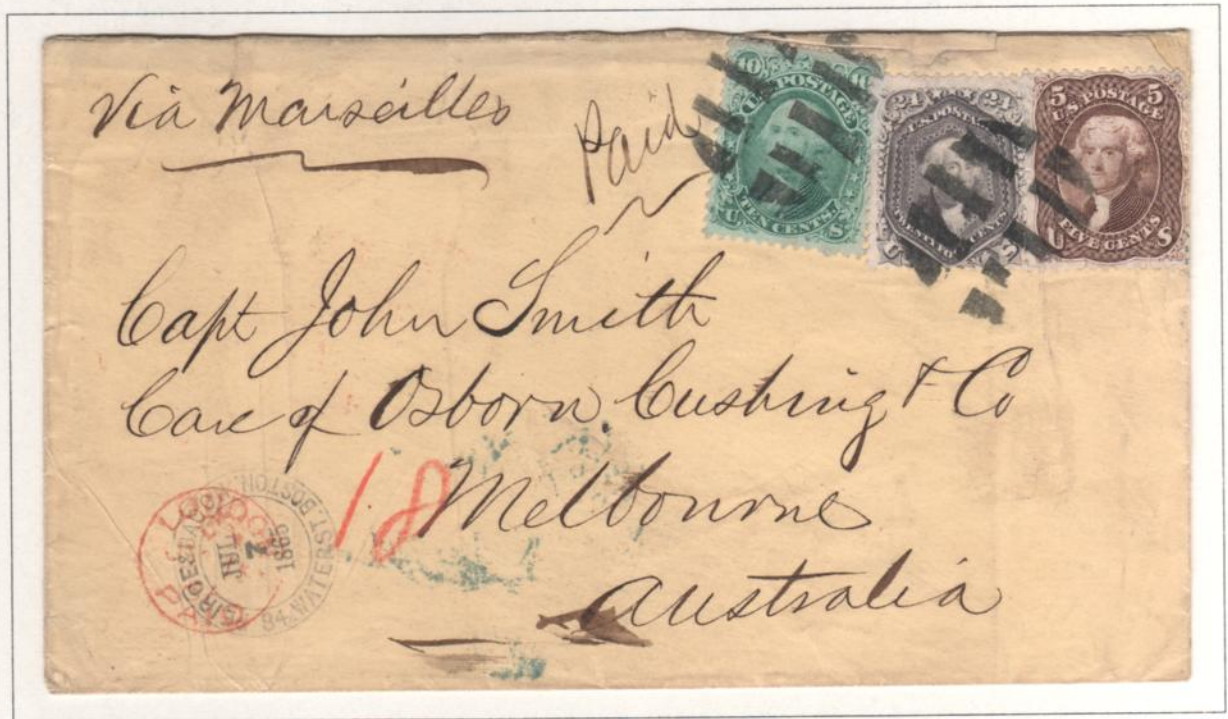 Via Marseilles
Paid
10 10
U.S. POSTAGE
TEN CENTS.
U S
24 24
U.S. POSTAGE
CENTS
U S
5 5
U.S. POSTAGE
FIVE CENTS
U S
Capt John Smith
Care of Osborn, Cushing & Co
Melbourne
Australia
18
LONDON
PAID
JUL
1865
84 WATER ST. BOSTON